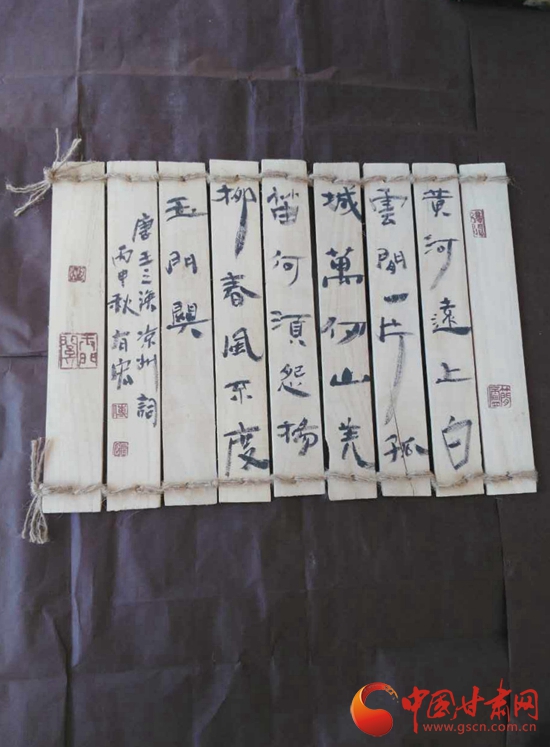 黄河遠上白
雲間一片孤
城萬仞山羌
笛何須怨楊
柳春風不度
玉門関
唐王之渙凉州詞
丙申秋
玉門関
中国甘肃网
www.gscn.com.cn